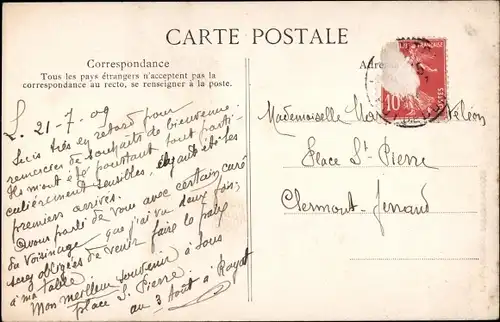 CARTE POSTALE
Correspondance
Tous les pays étrangers n'acceptent pas la
correspondance au recto, se renseigner à la poste.
Adre
10
POSTES
L. 21-7-09
Suis très en retard pour
remercier de souhaits de bienvenue.
Ils m'ont été pourtant tout parti-
culièrement sensibles, ayant été les
premiers arrivés.
Avons parlé de vous avec certain curé
du voisinage que j'ai vu deux fois;
serez obligées de venir faire le
à ma table.
Mon meilleur souvenir à tous
place St. Pierre.
au 3 Août à Royat
Mademoiselle
Place St Pierre
Clermont-Ferrand